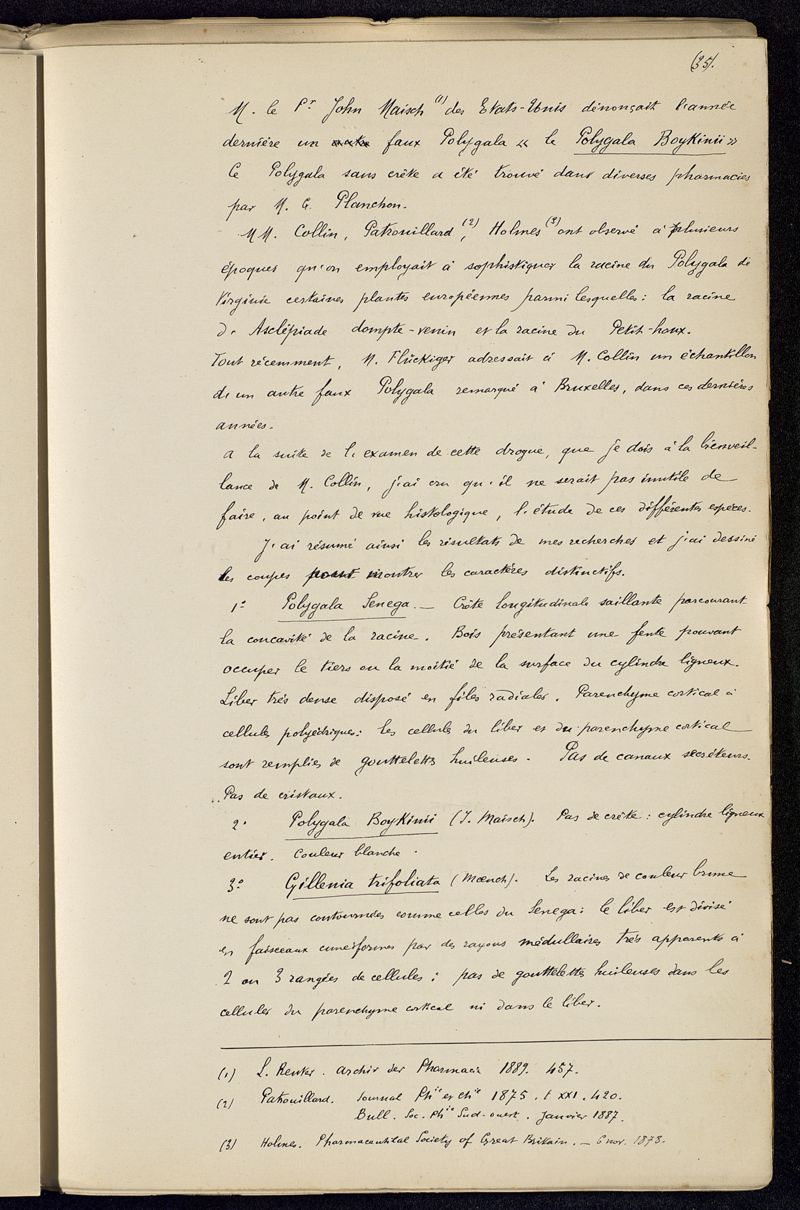 (35).
M. le Pr John Maisch (1) des Etats-Unis dénonçait l'année
dernière un faux Polygala « le Polygala Boykinii »
Ce Polygala sans crête a été trouvé dans diverses pharmacies
par M. G. Planchon.
MM. Collin, Patrouillard (2), Holmes (3) ont observé à plusieurs
époques qu'on employait à sophistiquer la racine du Polygala de
Virginie certaines plantes européennes parmi lesquelles : la racine
d'Asclépiade dompte-venin et la racine du Petit-houx.
Tout récemment, M. Flückiger adressait à M. Collin un échantillon
d'un autre faux Polygala remarqué à Bruxelles, dans ces dernières
années.
A la suite de l'examen de cette drogue, que je dois à la bienveil-
lance de M. Collin, j'ai cru qu'il ne serait pas inutile de
faire, au point de vue histologique, l'étude de ces différentes espèces.
J'ai résumé ainsi les résultats de mes recherches et j'ai dessiné
les coupes pour montrer les caractères distinctifs.
1° Polygala Senega. — Crête longitudinale saillante parcourant
la concavité de la racine. Bois présentant une fente pouvant
occuper le tiers ou la moitié de la surface du cylindre ligneux.
Liber très dense disposé en files radiales. Parenchyme cortical à
cellules polyédriques : les cellules du liber et du parenchyme cortical
sont remplies de gouttelettes huileuses. Pas de canaux secréteurs.
Pas de cristaux.
2° Polygala Boykinii (J. Maisch). Pas de crête : cylindre ligneux
entier. Couleur blanche.
3° Gillenia trifoliata (Mœnch). Les racines de couleur brune
ne sont pas contournées comme celles du Senega : le liber est divisé
en faisceaux cunéiformes par des rayons médullaires très apparents à
2 ou 3 rangées de cellules : pas de gouttelettes huileuses dans les
cellules du parenchyme cortical ni dans le liber.
(1) L. Reuter. Archiv der Pharmacie 1889. 457.
(2) Patrouillard. Journal Phie et Chie 1875. t XXI. 420.
Bull. Soc. Phie Sud-ouest. Janvier 1887.
(3) Holmes. Pharmaceutical Society of Great Britain. — 6 nov. 1878.